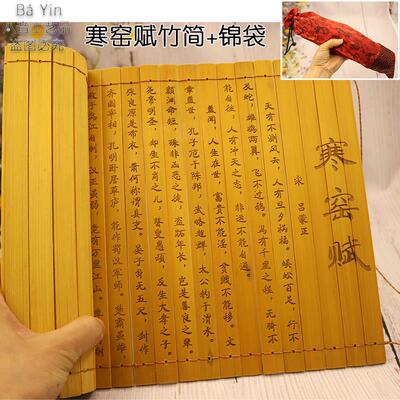 Bá Yin
盗图必究
寒窑赋竹简+锦袋
寒窑赋
宋 吕蒙正
天有不测风云，人有旦夕祸福。蜈蚣百足，行不
及蛇；雄鸡两翼，飞不过鸦。马有千里之程，无骑不
能自往；人有冲天之志，非运不能自通。
盖闻：人生在世，富贵不能淫，贫贱不能移。文
章盖世，孔子厄于陈邦；武略超群，太公钓于渭水。
颜渊命短，殊非凶恶之徒；盗跖年长，岂是善良之辈。
尧帝明圣，却生不肖之儿；瞽叟愚顽，反生大孝之子。
张良原是布衣，萧何称谓县吏。晏子身无五尺，封作
齐国宰相；孔明卧居草庐，能作蜀汉军师。楚霸虽雄，
败于乌江自刎；汉王虽弱，竟有万里江山。